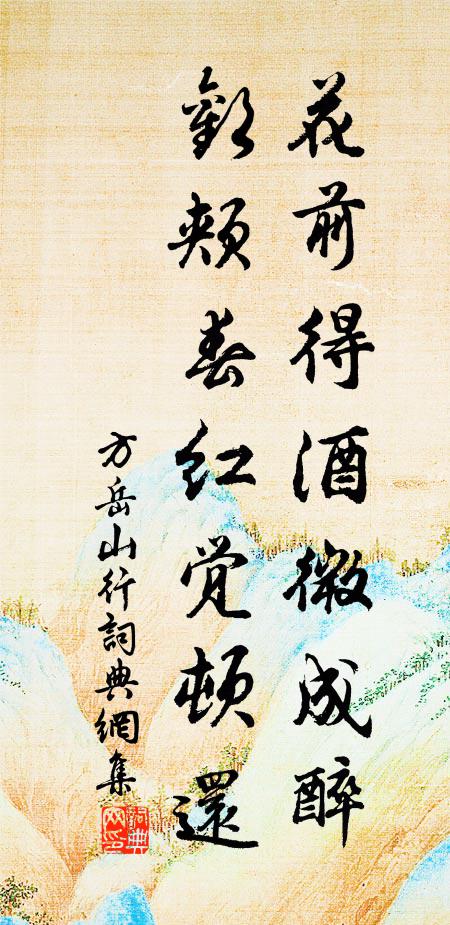 花前得酒微成醉
顿颊春红觉顿还
方岳山行詞典網集
詞典網印